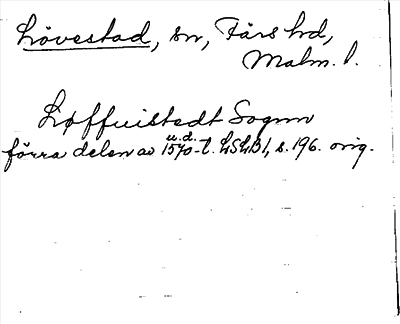 Lövestad, sn, Färs hd,
Malm. l.
Løffuistedt Sognn
u.d.
förra delen av 1570-t. LSLB1, s. 196. orig.